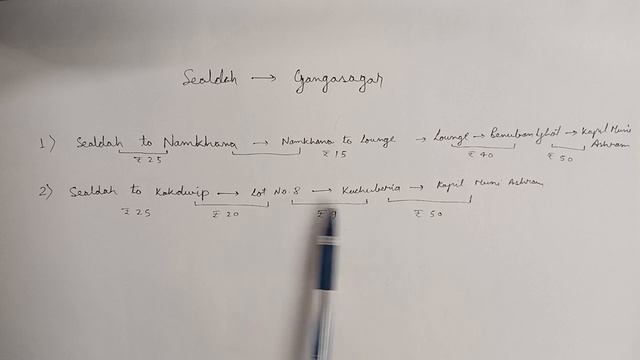 Sealdah → Gangasagar
1) Sealdah to Namkhana → Namkhana to Lounge → Lounge → Benuban Ghat → Kapil Muni Ashram
₹ 25 ₹ 15 ₹ 40 ₹ 50
2) Sealdah to Kakdwip → Lot No. 8 → Kuchuberia → Kapil Muni Ashram
₹ 25 ₹ 20 ₹ ₹ 50